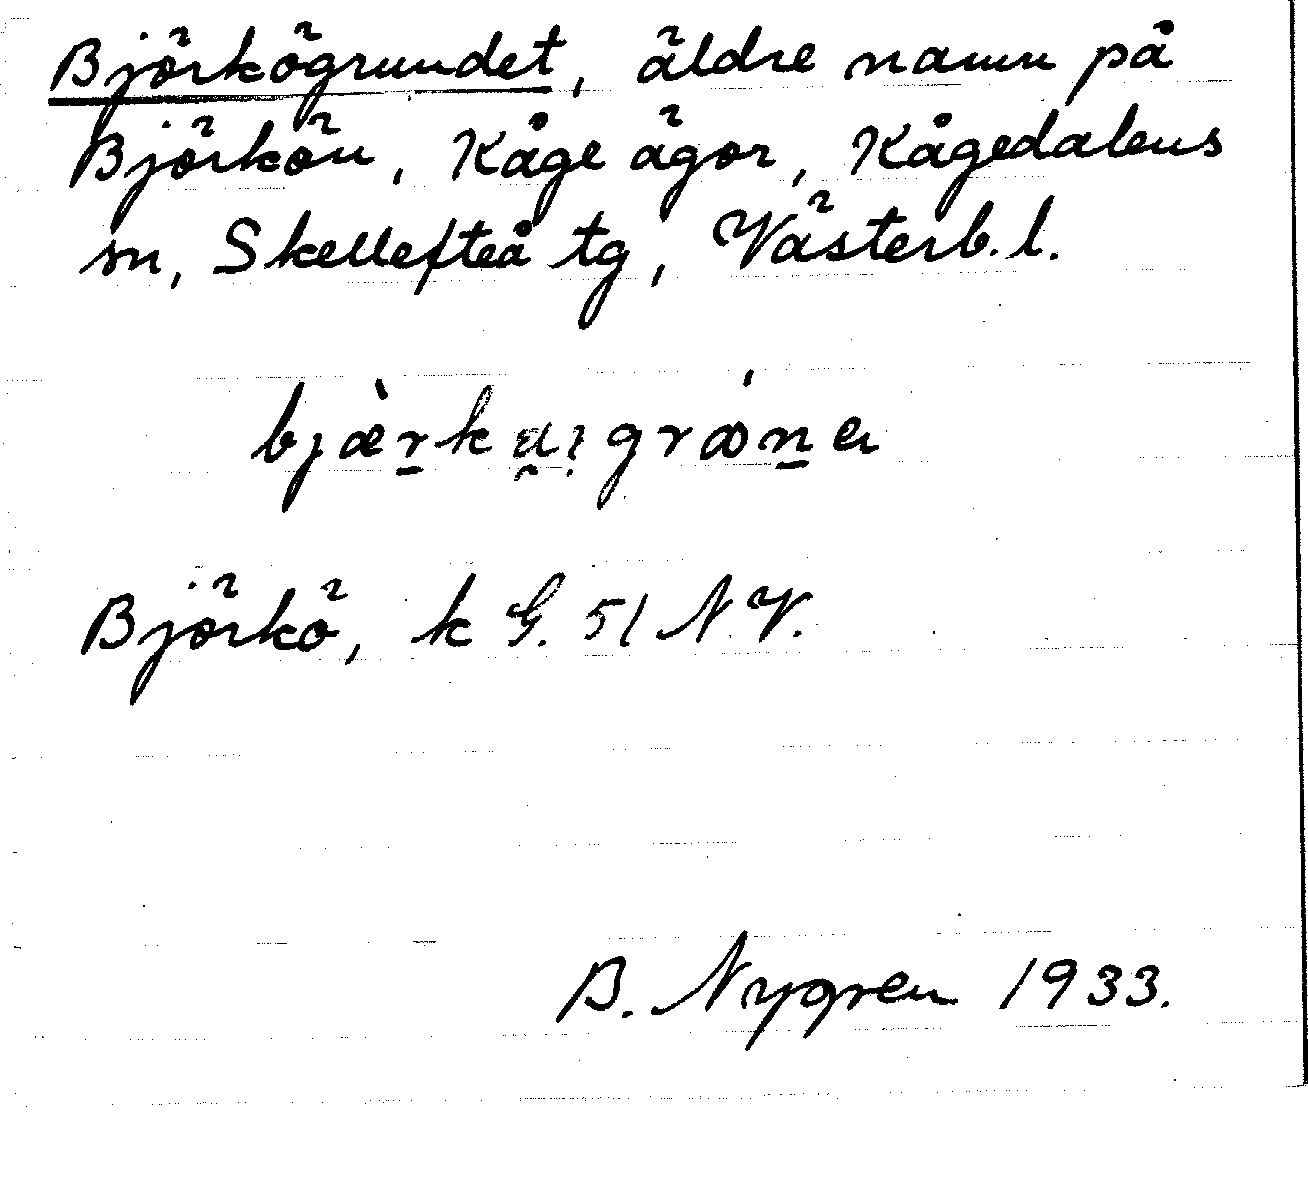 Björkögrundet, äldre namn på
Björkön, Kåge ägor, Kågedalens
sn, Skellefteå tg, Västerb. l.
Björkö, k G. 51 N V.
B. Nygren 1933.